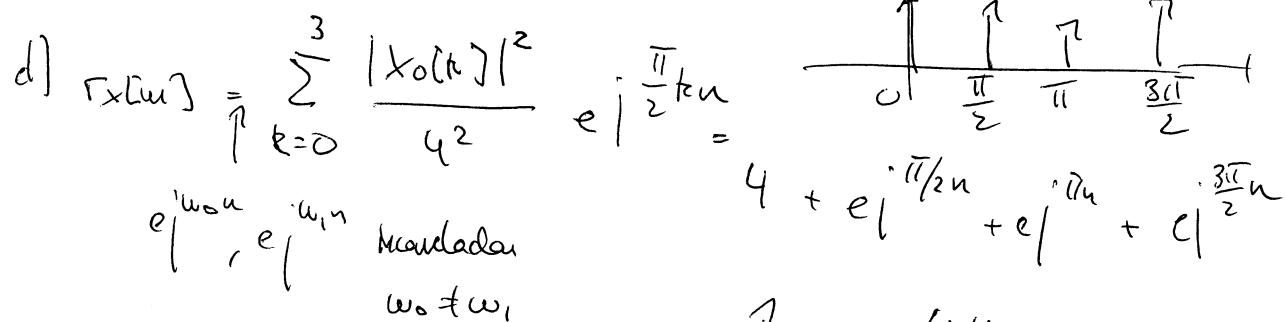 d] rx[n] = ∑_{k=0}^{3} |X₀[k]|² / 4² e^{j π/2 kn} =
0 π/2 π 3π/2
4 + e^{j π/2 n} + e^{j πn} + e^{j 3π/2 n}
↑
e^{jω₀n}, e^{jω₁n}
ω₀ ≠ ω₁